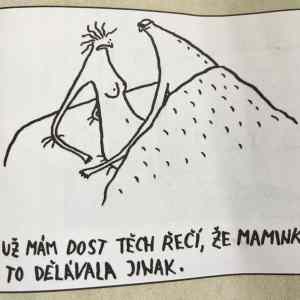 UŽ MÁM DOST TĚCH ŘEČÍ, ŽE MAMINK
TO DĚLÁVALA JINAK.